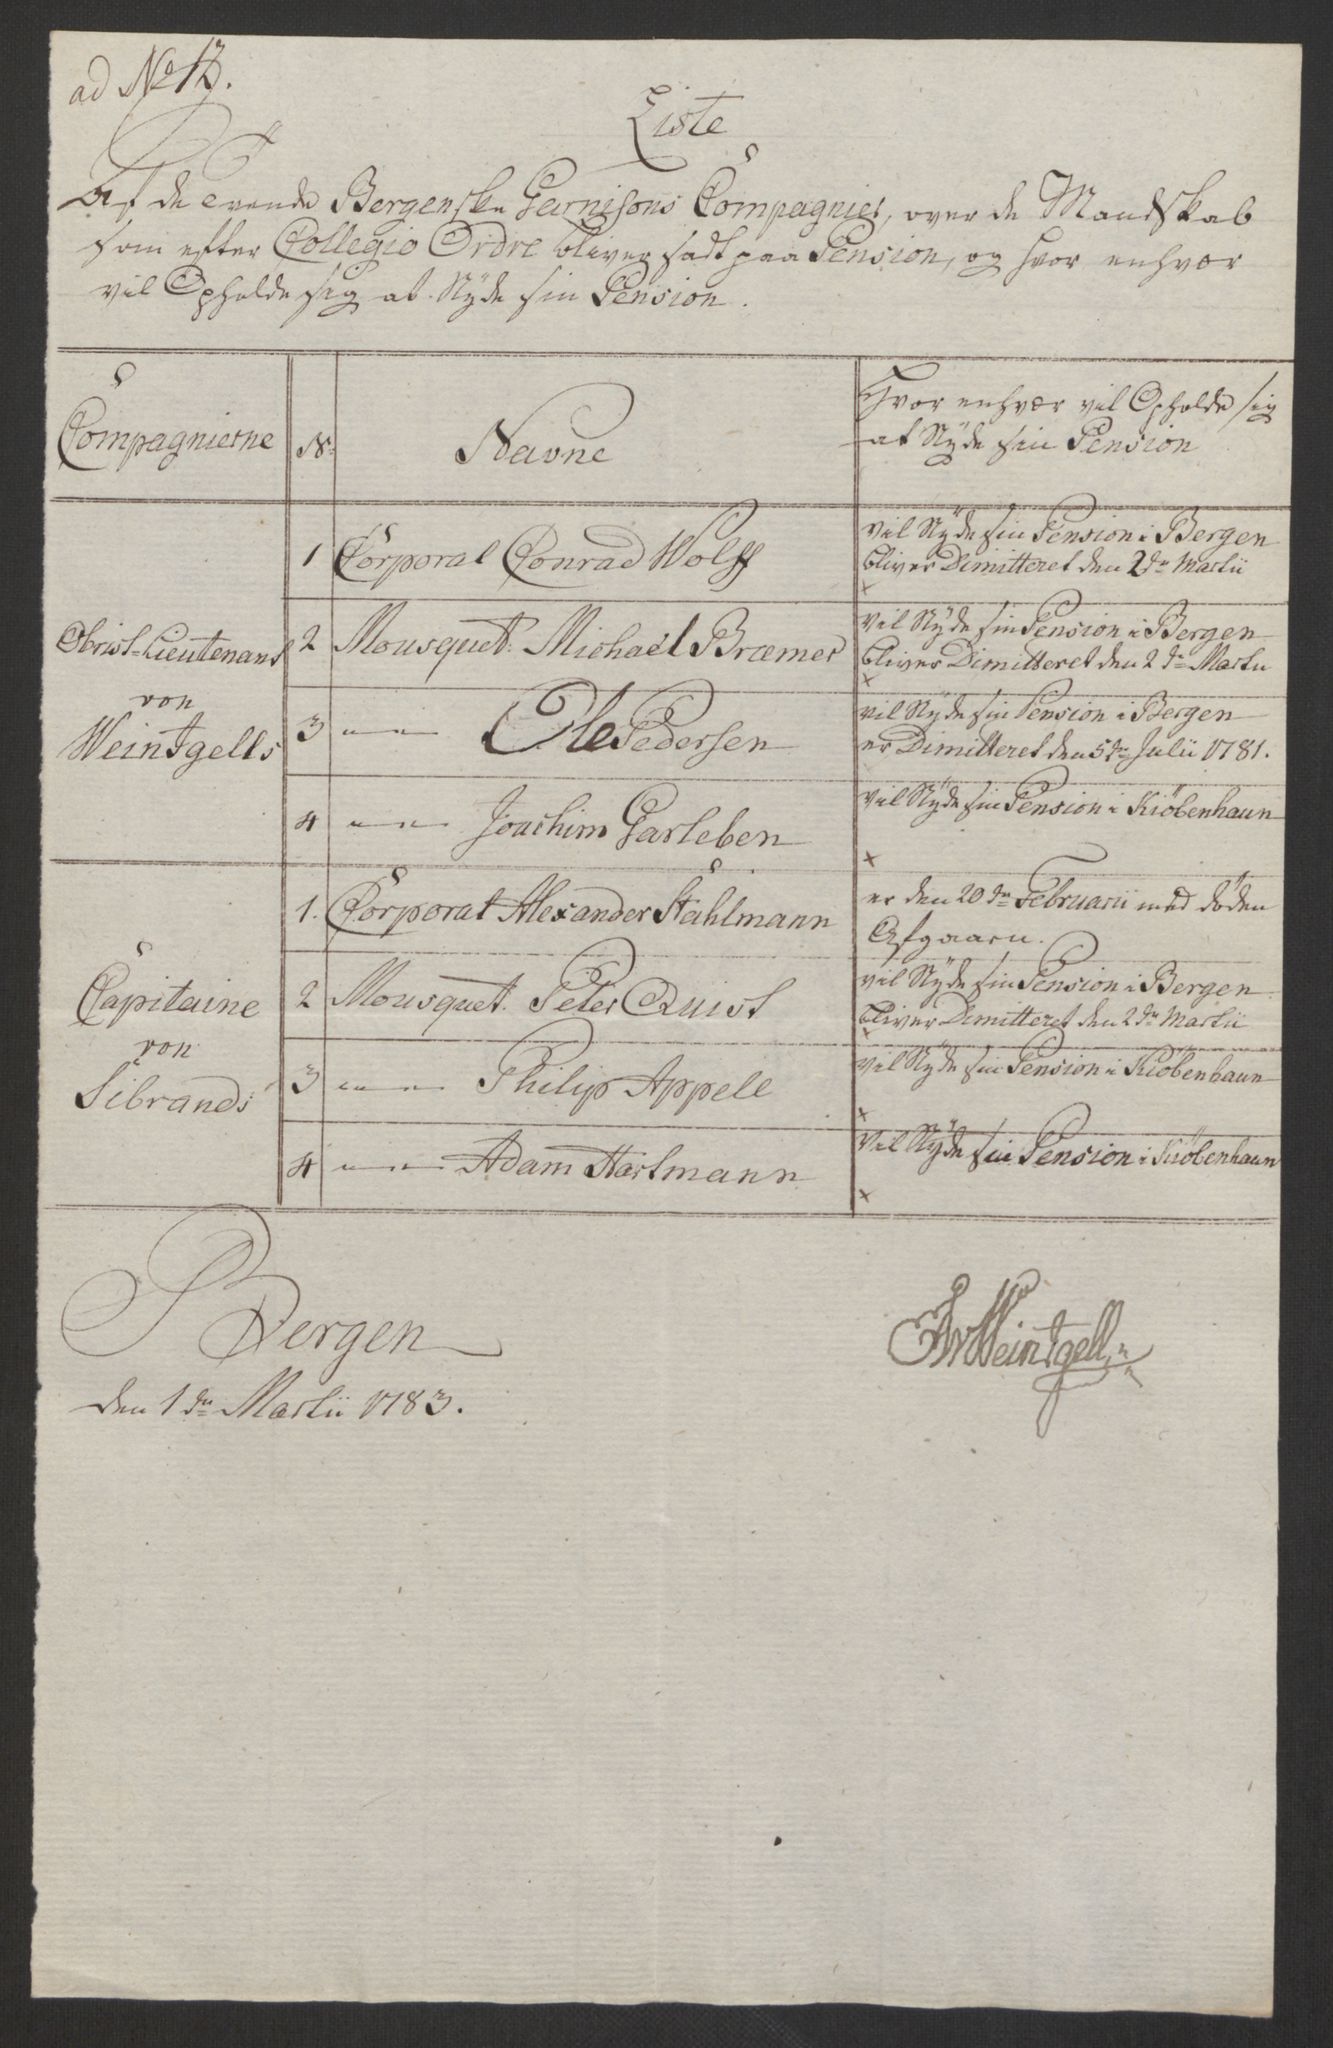 ad No 13.
Liste
Af de tvende Bergenske Garnisons Compagnier, over de Mandskab
som efter Collegio Ordre bliver sadt paa Pension, og hvor enhver
vil Opholde sig at Nyde sin Pension.
Compagnierne
N:
Navne
Hvor enhver vil Opholde sig
at Nyde sin Pension
Obrist-Lieutenant
von
Weintgells
1 Corporal Conrad Wolff
vil Nyde sin Pension i Bergen
bliver Dimitteret den 2den Martii
2 Mousquet: Michael Bræmer
vil Nyde sin Pension i Bergen
bliver Dimitteret den 2den Martii
3 — — Ole Pedersen
vil Nyde sin Pension i Bergen
er Dimitteret den 5ten Julii 1781.
4 — — Joachim Garleben
vil Nyde sin Pension i Kiöbenhaun
Capitaine
von
Sibrands
1. Corporal Alexander Stahlmann
er den 20de Februarii med döden
Afgaaen.
2 Mousquet: Peter Quist
vil Nyde sin Pension i Bergen
bliver Dimitteret den 2den Martii
3 — — Philip Appele
vil Nyde sin Pension i Kiöbenhaun
4 — — Adam Hartmann
Vil Nyde sin Pension i Kiöbenhaun
Bergen
den 1den Martii 1783.
Weintgell